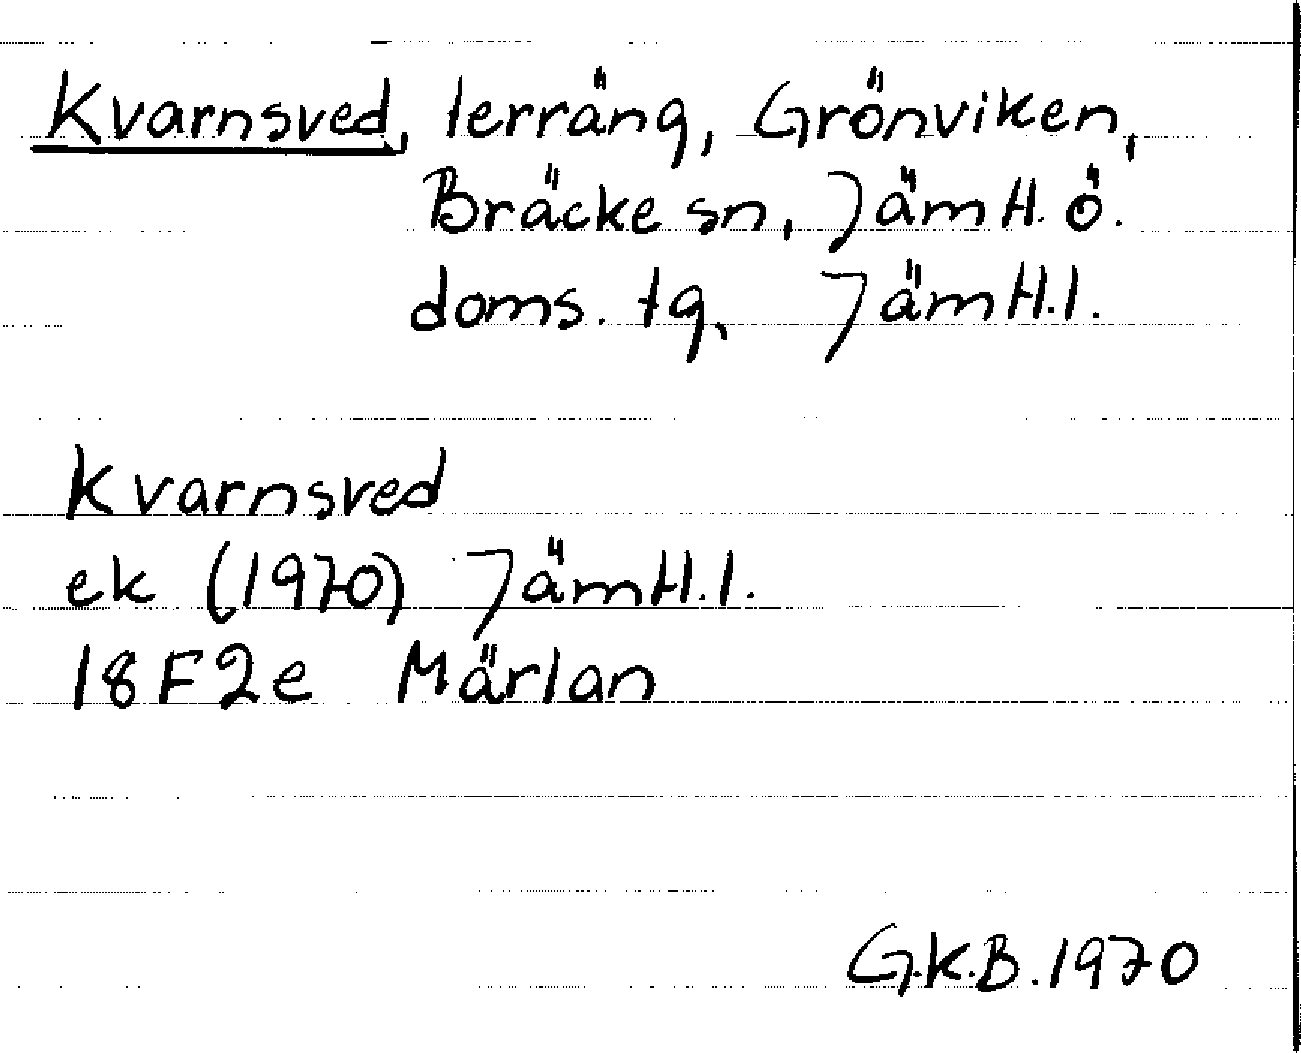 Kvarnsved, terräng, Grönviken,
Bräcke sn, Jämtl. ö.
doms. tg, Jämtl. l.
Kvarnsved
ek (1970) Jämtl. l.
18F2e Märlan
G.K.B. 1970